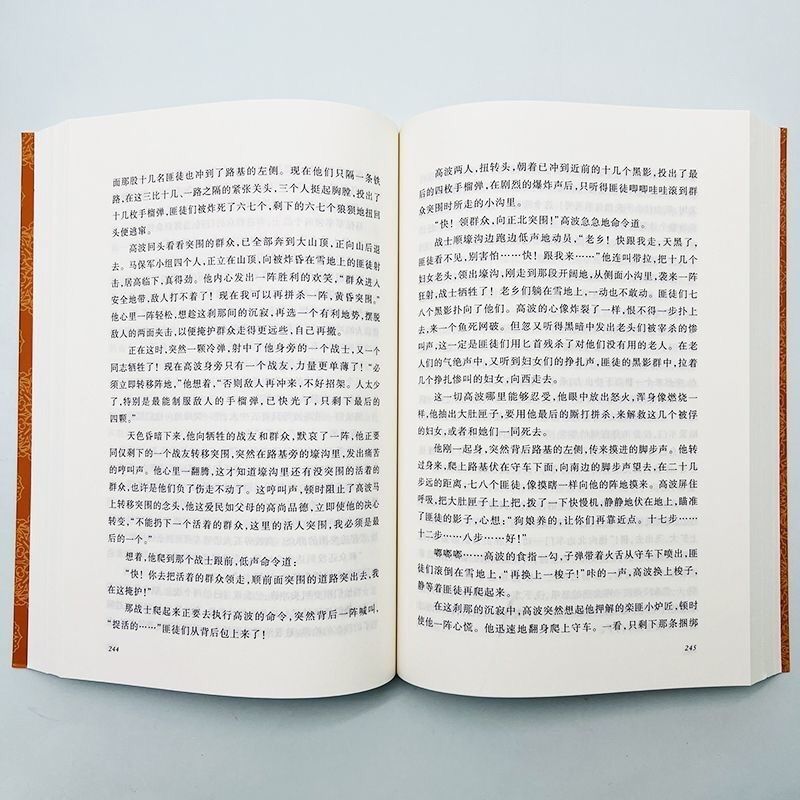 面那股十几名匪徒也冲到了路基的左侧。现在他们只隔一条铁
路，在这三比十几、一路之隔的紧张关头，三个人挺起胸膛，投出了
十几枚手榴弹，匪徒们被炸死了六七个，剩下的六七个狼狈地扭
回头便逃窜。
高波回头看看突围的群众，已全部奔到大山顶，正向山后退
去。马保军小组四个人，正立在山顶，向被炸昏在雪地上的匪徒射
击，居高临下，真得劲。他内心发出一阵胜利的欢笑，“群众进入
安全地带，敌人打不着了！现在我可以再拼杀一阵，黄昏突围。”
他心里一阵轻松，想趁这刹那间的沉寂，再选一个有利地势，摆脱
敌人的两面夹击，以便掩护群众走得更远些，自己再撤。
正在这时，突然一颗冷弹，射中了他身旁的一个战士，又一个
同志牺牲了！现在高波身旁只有一个战友，力量更单薄了！“必
须立即转移阵地，”他想着，“否则敌人再冲来，不好招架。人太少
了，特别是最能制服敌人的手榴弹，已快光了，只剩下最后的
四颗。”
天色昏暗下来，他向牺牲的战友和群众，默哀了一阵，他正要
同仅剩下的一个战友转移突围，突然在路基旁的壕沟里，发出痛苦
的哼叫声。他心里一翻腾，这才知道壕沟里还有没突围的活着的
群众，也许是他们负了伤走不动了。这哼叫声，顿时阻止了高波马
上转移突围的念头，他这爱民如父母的高尚品德，立即使他的决心
转变，“不能扔下一个活着的群众，这里的活人突围，我必须是最
后的一个。”
想着，他爬到那个战士跟前，低声命令道：
“快！你去把活着的群众领走，顺前面突围的道路突出去，我
在这掩护！”
那战士爬起来正要去执行高波的命令，突然背后一阵喊叫，
“捉活的……”匪徒们从背后包上来了！
244
高波两人，扭转头，朝着已冲到近前的十几个黑影，投出了最
后的四枚手榴弹，在剧烈的爆炸声后，只听得匪徒唧唧哇哇滚到群
众突围时所走的小沟里。
“快！领群众，向正北突围！”高波急急地命令道。
战士顺壕沟边跑边低声地动员，“老乡！快跟我走，天黑了，
匪徒看不见，别害怕……快！跟我来……”他连叫带拉，把十几个
妇女老头，领出壕沟，刚走到那段开阔地，从侧面小沟里，袭来一阵
狂射，战士牺牲了！老乡们躺在雪地上，一动也不敢动。匪徒们七
八个黑影扑向了他们。高波的心像炸裂了一样，恨不得一步扑上
去，来一个鱼死网破。但忽又听得黑暗中发出老头们被宰杀的惨
叫声，这一定是匪徒们用匕首残杀了对他们没有用的老人。在老
人们的气绝声中，又听到妇女们的挣扎声，匪徒的黑影群中，拉着
几个挣扎惨叫的妇女，向西走去。
这一切高波哪里能够忍受，他眼中放出了怒火，浑身像燃烧一
样，他抽出大肚匣子，要用他最后的厮打拼杀，来解救这几个被俘
的妇女，或者和她们一同死去。
他刚一起身，突然背后路基的左侧，传来摸进的脚步声。他转
过身来，爬上路基伏在守车下面，向南边的脚步声望去，在二十几
步远的距离，七八个匪徒，像摸瞎一样向他的阵地摸来。高波屏住
呼吸，把大肚匣子上上把，拨了一下快慢机，静静地伏在地上，瞄准
了匪徒的影子，心想：“狗娘养的，让你们再靠近点。十七步……
十二步……八步……好！”
嘟嘟嘟……高波的食指一勾，子弹带着火舌从守车下喷出，匪
徒们滚倒在雪地上，“再换上一梭子！”咔的一声，高波换上梭子，
静等着匪徒再爬起来。
在这刹那的沉寂中，高波突然想起他押解的栾匪小炉匠，顿时
使他一阵心慌。他迅速地翻身爬上守车。一看，只剩下那条捆绑
245